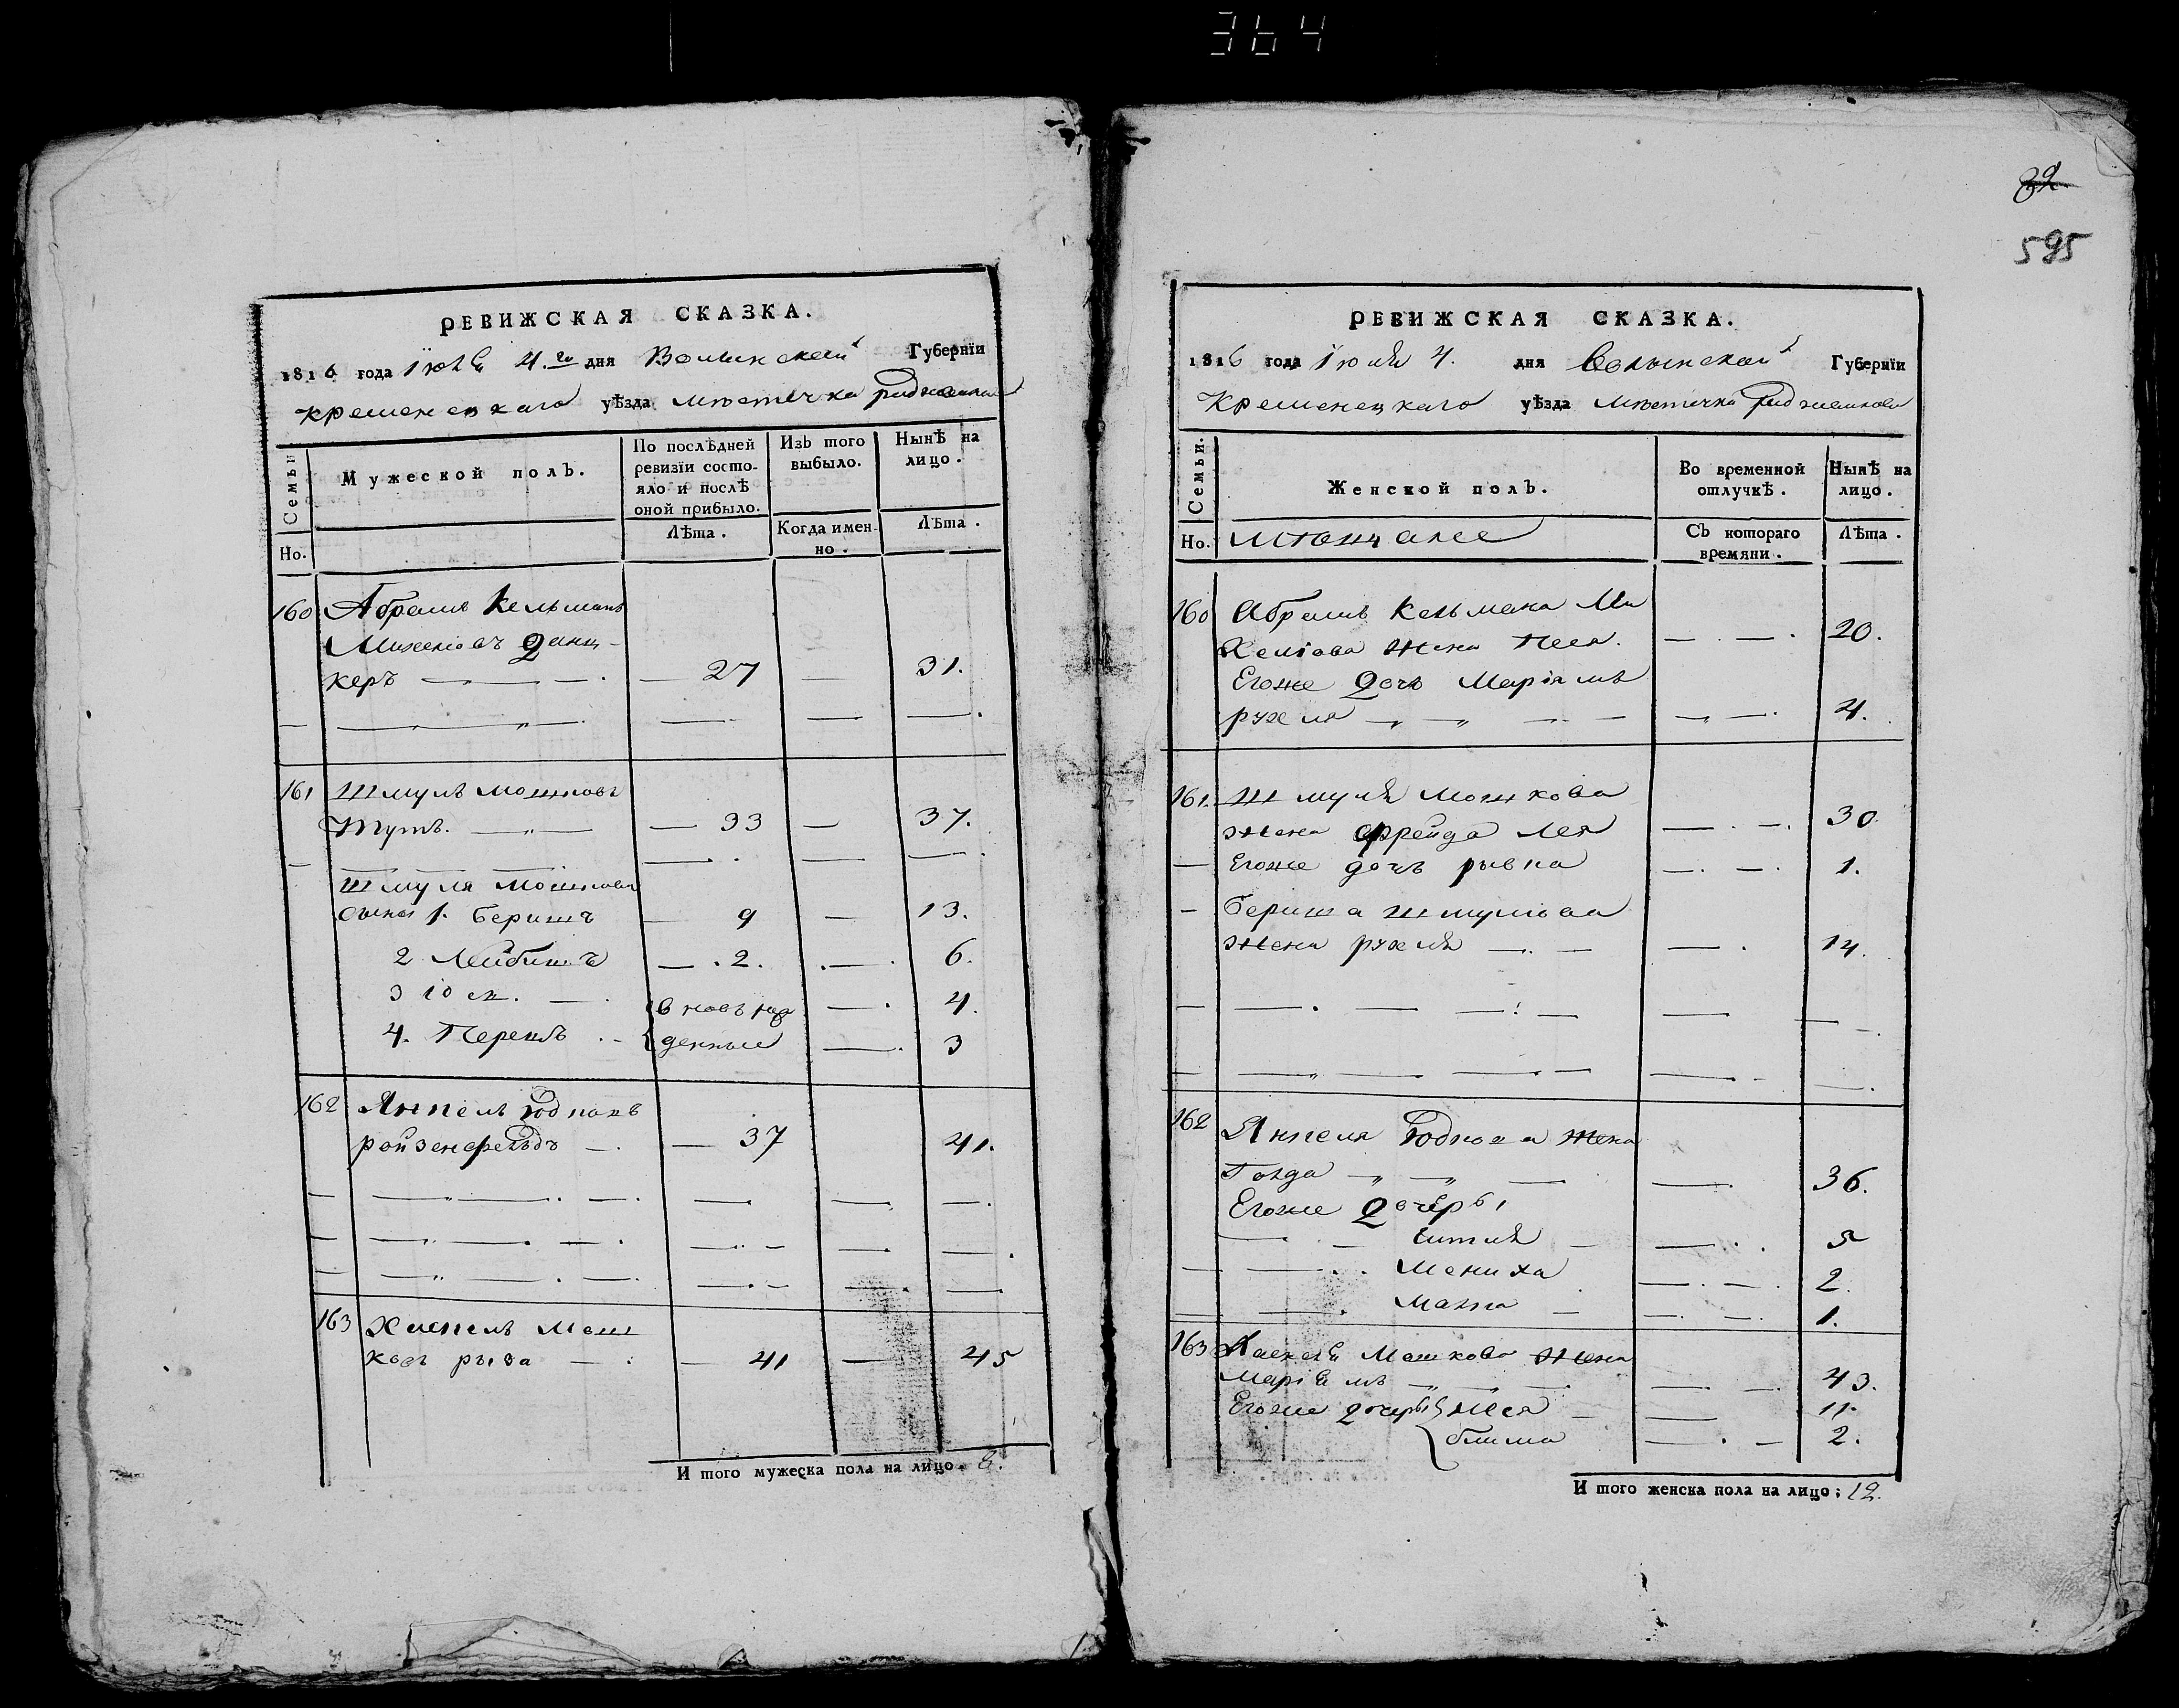 364
32
595
РЕВИЖСКАЯ СКАЗКА.
1816 года Iюля 4.го дня Волынской Губернїи
Кременецкаго уѣзда мѣстечка
Семьи
Мужеской полъ.
По послѣдней ревизїи состояло и послѣ оной прибыло.
Изъ того выбыло.
Нынѣ на лицо.
Но.
Лѣта.
Когда именно.
Лѣта.
160 Абрамъ Кельманъ
Михелiовъ Данц-
керъ — 27 — 31.
161 Шмуль Мошковъ
— 33 — 37.
Шмуля Мошкова
сыны 1. Беришъ — 9 — 13.
2 Лейбишъ — 2. — 6.
3 Iось. — вновь рож — 4.
4. — денные — 3
162 Янкель Юдковъ
ройзенфельдъ — 37 41.
163 Хаскель Мош
ковъ рыза — 41 — 45
И того мужеска пола на лицо. 8.
РЕВИЖСКАЯ СКАЗКА.
1816 года Iюля 4. дня Волынской Губернїи
Кременецкаго уѣзда мѣстечка
Семьи.
Женской полъ.
Во временной отлучкѣ.
Нынѣ на лицо.
Но. мѣщане
Съ котораго времяни.
Лѣта.
160 Абрамъ Кельмана Ми
хелiова жена Песя. — 20.
Егоже Дочь Марiамъ
рухля — 4.
161. Шмуля Мошкова
жена Фрейда Лея — 30.
Егоже дочь рывка — 1.
Бериша Шмулiова
жена рухля — 14.
162 Янкеля Юдкова жена
Голда — 36.
Егоже Дочеры
Ештля — 5
Мениха — 2.
Малка — 1.
163 Хаскеля Мошкова жена
Марiямъ — 43.
Егоже дочеры { Неся — 11.
{ блима — 2.
И того женска пола на лицо; 12.